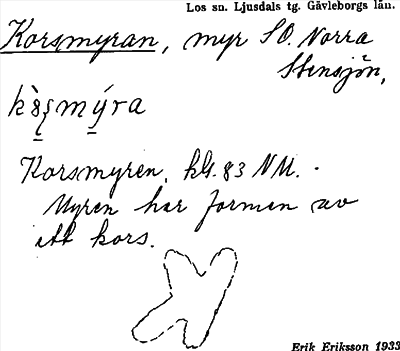 Los sn. Ljusdals tg. Gävleborgs län.
Korsmyran, myr SO. Norra
Stensjön,
Korsmyren. kbl. 83 NM.
Myren har formen av
ett kors.
Erik Eriksson 1933